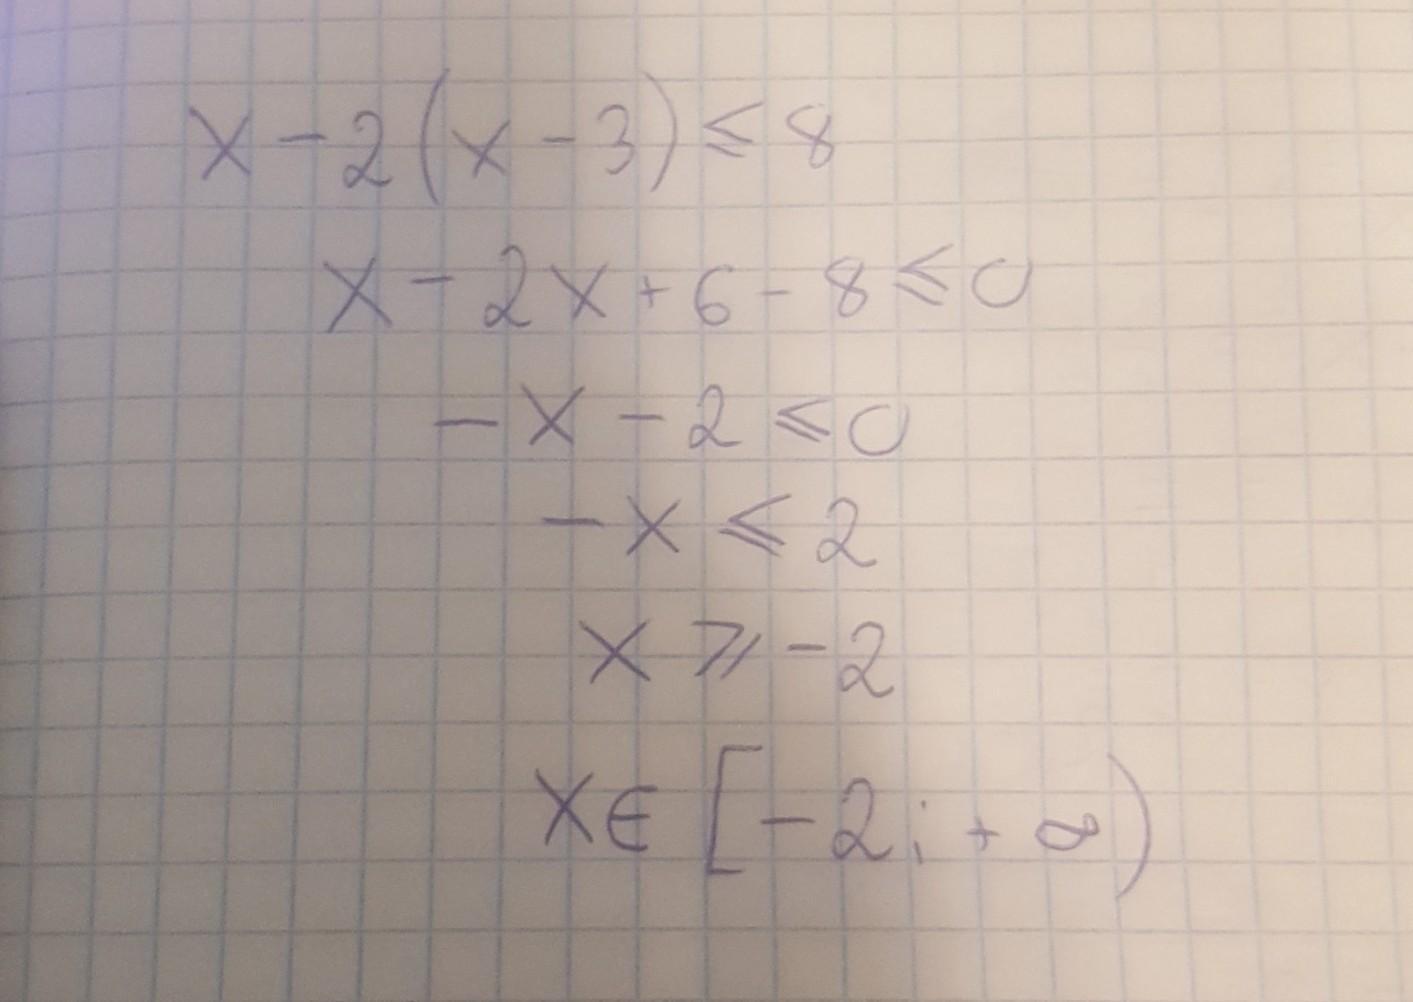 x - 2(x - 3) ≤ 8
x - 2x + 6 - 8 ≤ 0
- x - 2 ≤ 0
- x ≤ 2
x ⩾ -2
x ∈ [-2; + ∞)